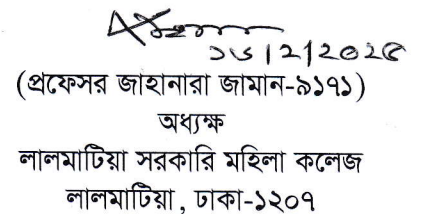 ১৬/2/2025
(প্রফেসর জাহানারা জামান-৯১৭১)
অধ্যক্ষ
লালমাটিয়া সরকারি মহিলা কলেজ
লালমাটিয়া, ঢাকা-১২০৭